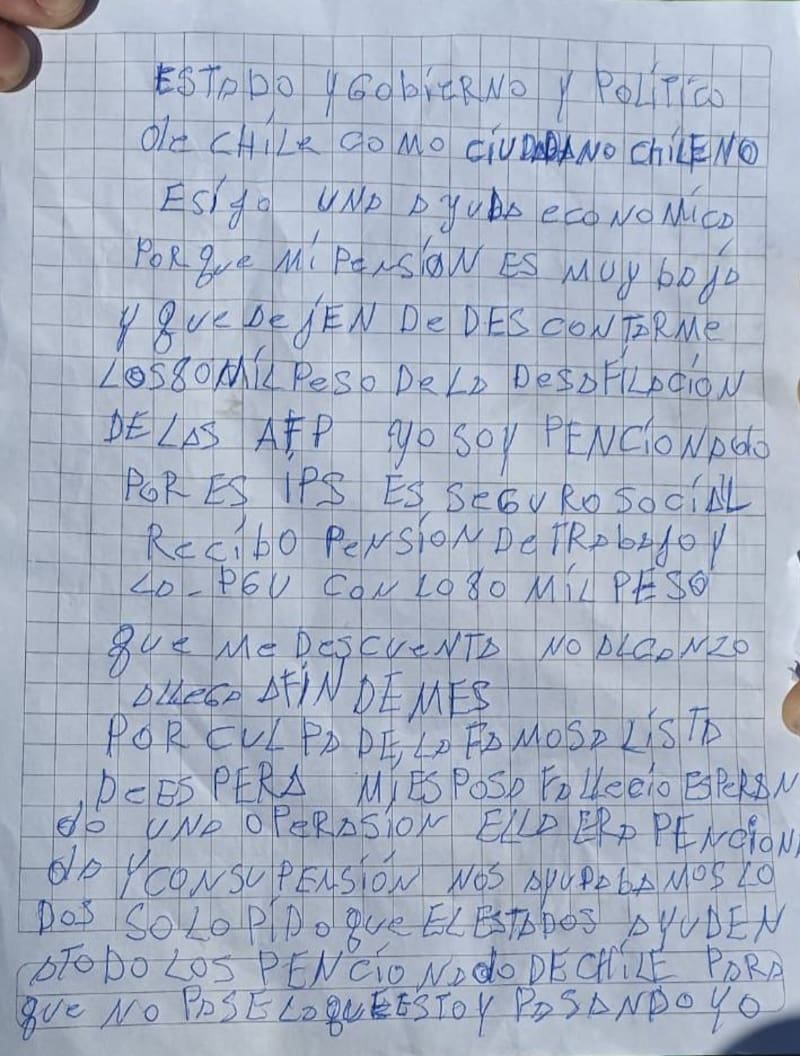 ESTADO Y GobiERNO Y POLÍTICO
de CHiLe COMO CíUDADANO CHiLENO
ESíJO UNA AYUDA ECONOMíCA
PORque Mi PeNSióN ES MUY bAJA
Y que DeJEN De DESCONTARMe
LOS 80 MíL PeSO De LA DeSAFiLACióN
DE LAS AFP YO SOY PENCíONAdo
POR ES iPS ES SEGURO SOCíAL
ReCíbO PeNSíON De TRAbAJO Y
LA - PGU CON LO 80 MíL PESO
que Me DesCUeNTA NO ALCANZO
A LLEGA A FíN DE MES
POR CULPA DE LA FAMOSA LíSTA
De ESPERA Mi ESPOSA FALLeCio ESPeRAN
do UNA OPeRASíON ELLA ERA PENCíON
dA Y CON SU PENSióN NOS AYUDABAMOS LO
DOS SOLO PíDO que EL ESTADOS AYUDEN
A TODO LOS PENCíONAdo DE CHíLE PARA
que NO PASE LO que ESTOY PASANDO YO